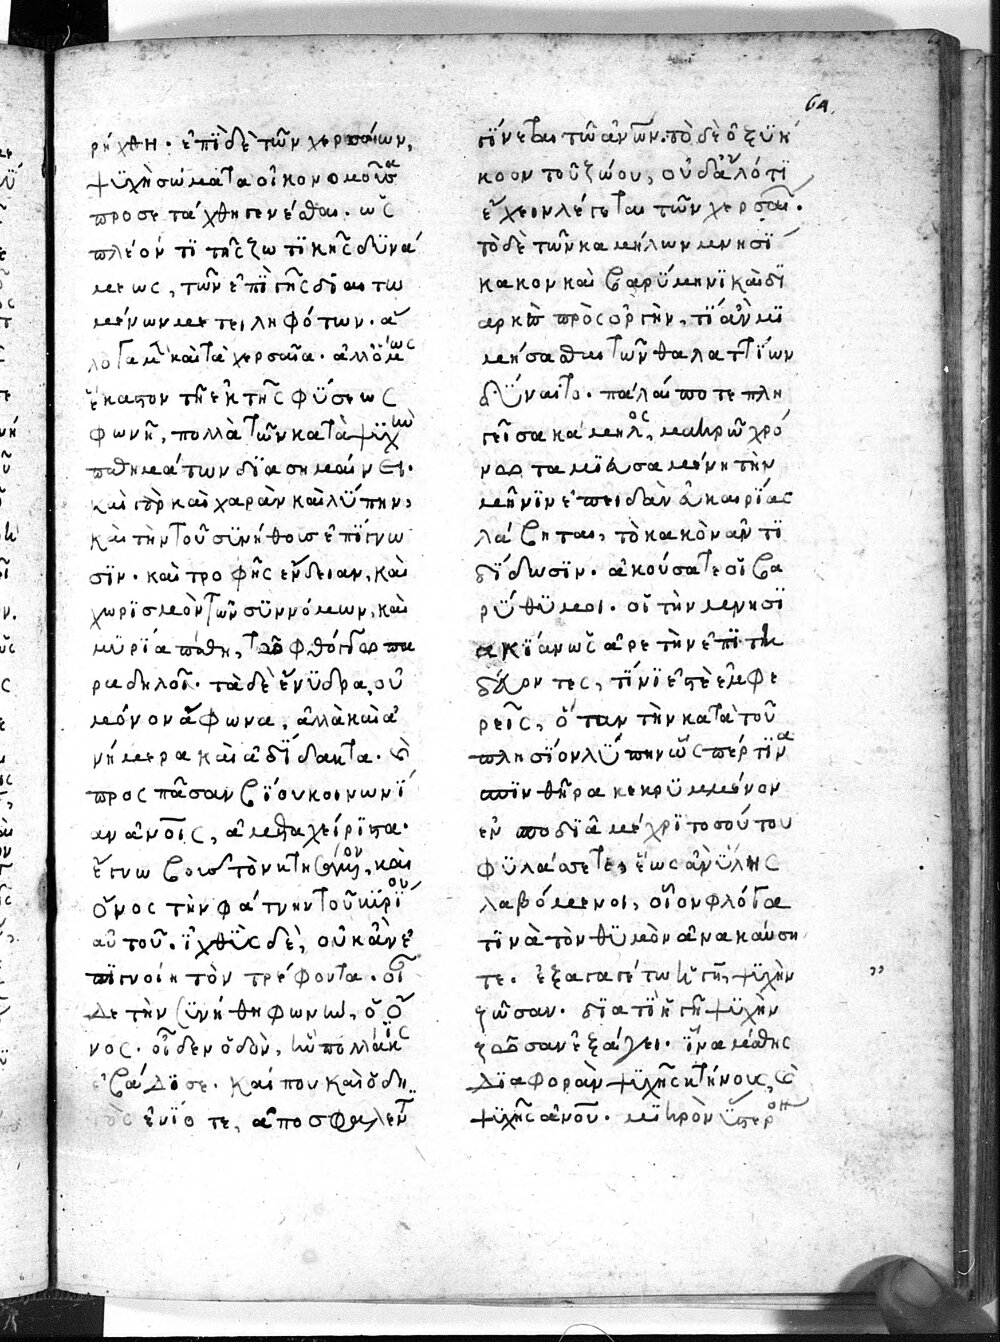 ρήχθη· ἐπὶ δὲ τῶν χερσαίων,
ψυχὴ σώματα οἰκονομοῦσα
προσετάχθη γενέσθαι· ὡς
πλέον τι τῆς ζωτικῆς δυνά
μεως, τῶν ἐπὶ γῆς διαιτω
μένων μετειληφότων· ἄ
λογα μὲν καὶ τὰ χερσαῖα· ἀλλ' ὅμως
ἕκαστον τῇ ἐκ τῆς φύσεως
φωνῇ, πολλὰ τῶν κατὰ ψυχὴν
παθημάτων διασημαίνει·
καὶ γὰρ καὶ χαρὰν καὶ λύπην,
καὶ τὴν τοῦ συνήθους ἐπίγνω
σιν· καὶ τροφῆς ἔνδειαν, καὶ
χωρισμὸν τῶν συννόμων, καὶ
μυρία πάθη, τῷ φθόγγῳ πα
ραδηλοῖ· τὰ δὲ ἔνυδρα, οὐ
μόνον ἄφωνα, ἀλλὰ καὶ ἀ
νήμερα καὶ ἀδίδακτα· καὶ
πρὸς πᾶσαν βίου κοινωνί
αν ἀνοις, ἀμεταχείριστα·
ἔγνω βοῦς τὸν κτησάμενον, καὶ
ὄνος τὴν φάτνην τοῦ κυρίου
αὐτοῦ· ἰχθὺς δὲ, οὐκ ἂν ἐ
πιγνοίη τὸν τρέφοντα· οἶ
δε τὴν συνήθη φωνὴν, ὁ ὄ
νος· οἶδεν ὁδὸν, ἣν πολλάκις
ἐβάδισε· καί που καὶ ὁδη
γὸς ἐνίοτε, ἀποσφαλέντι
γίνεται τῷ ἀνω· τὸ δὲ ὀξυή
κοον τοῦ ζώου, οὐδ' ἄλλό τι
ἔχειν λέγεται τῶν χερσαίων·
τὸ δὲ τῶν καμήλων μνησί
κακον καὶ βαρύμηνι καὶ δι
αρκὲς πρὸς ὀργὴν, τί ἂν μι
μήσασθαι τῶν θαλαττίων
δύναιτο· πάλαι ποτε πλη
γεῖσα κάμηλος, μακρῷ χρό
νῳ ταμιευσαμένη τὴν
μῆνιν ἐπειδὰν εὐκαιρίας
λάβηται, τὸ κακὸν ἀντι
δίδωσιν· ἀκούσατε οἱ βα
ρύθυμοι· οἱ τὴν μνησι
κακίαν ὡς ἀρετὴν ἐπιτη
δεύοντες, τίνι ἐστὲ ἐμφε
ρεῖς, ὅταν τὴν κατὰ τοῦ
πλησίον λύπην ὥσπερ τινὰ
σπινθῆρα κεκρυμμένον
ἐν σποδιᾷ μέχρι τοσούτου
φυλάσσετε, ἕως ἂν ὕλης
λαβόμενοι, οἷον φλόγα
τινὰ τὸν θυμὸν ἀνακαύση
τε· ἐξαγαγέτω ἡ γῆ, ψυχὴν
ζῶσαν· διατί ἡ γῆ ψυχὴν
ζῶσαν ἐξάγει· ἵνα μάθῃς
διαφορὰν ψυχῆς κτήνους, καὶ
ψυχῆς ἀνου· μικρὸν ὕστερον